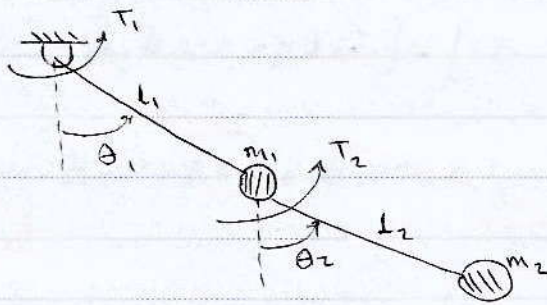 T1
l1
θ1
m1
T2
l2
θ2
m2